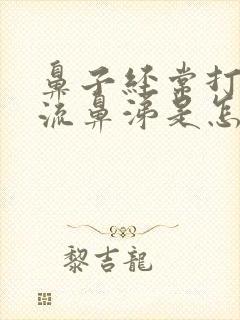 鼻子经常打
流鼻涕是怎
黎吉龍